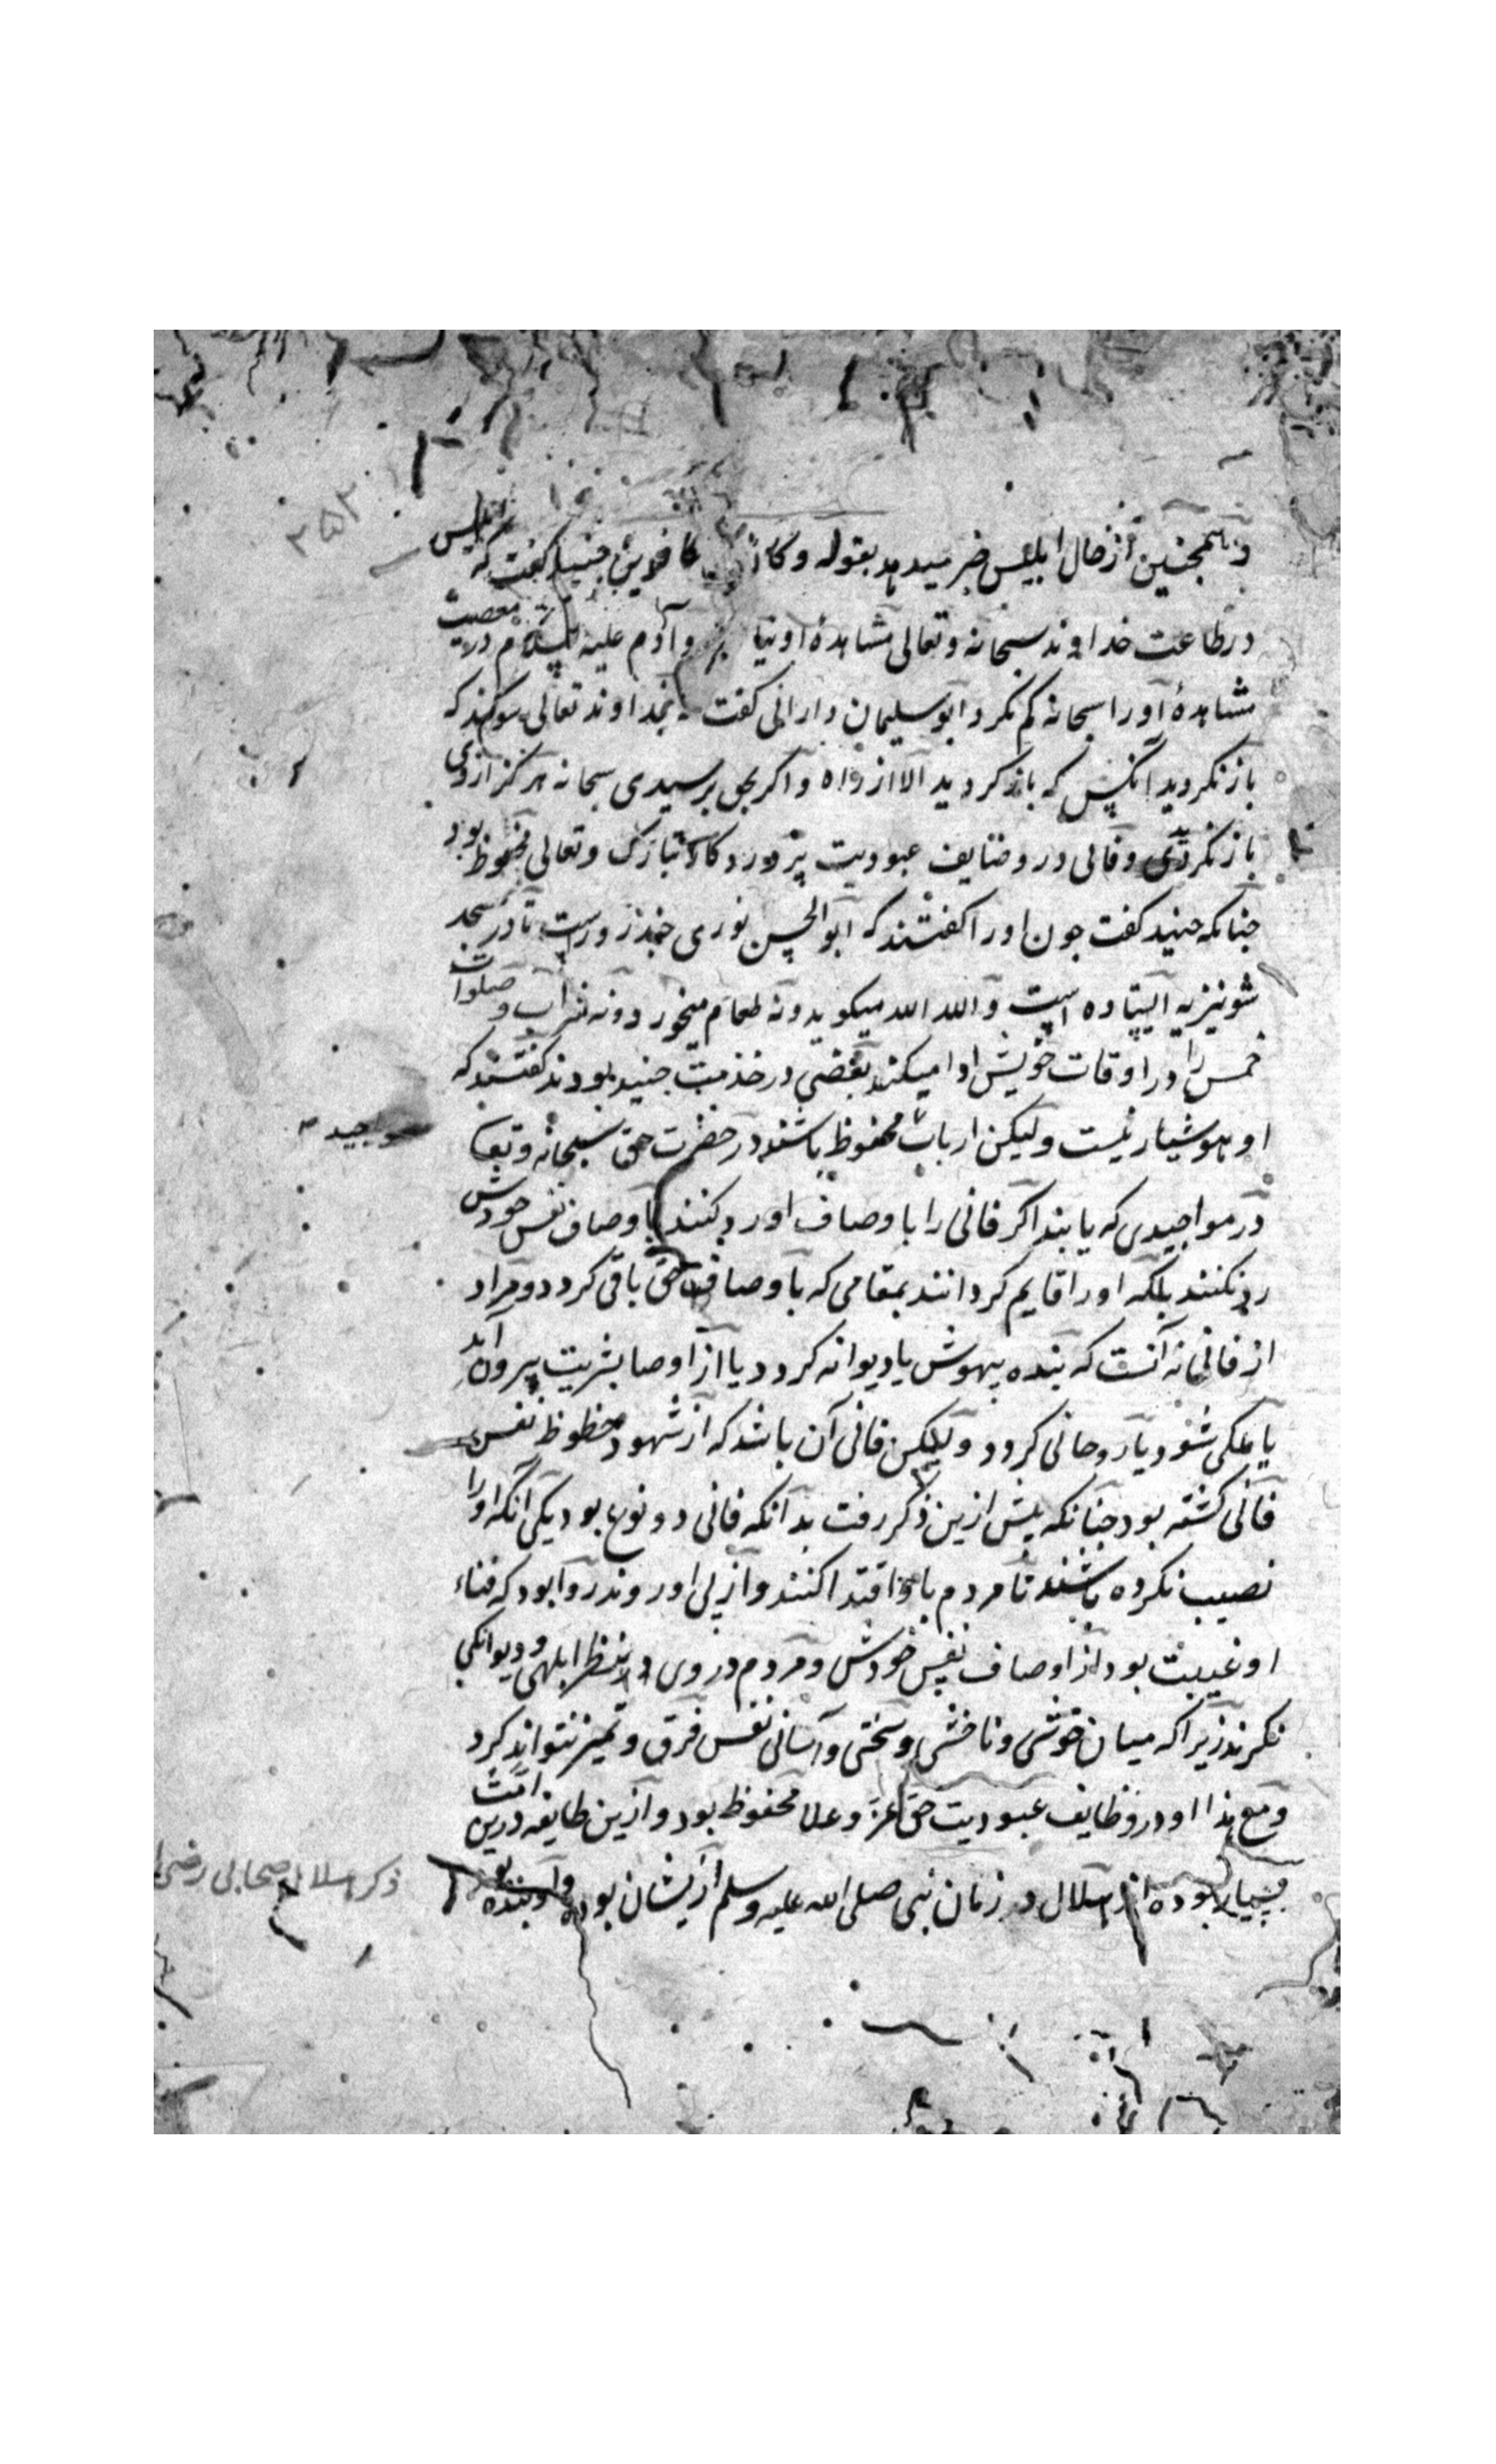 ۳۵۲
و همچنین از حال ابلیس خبر میدهد بقوله وکان کافرین جنید گفت که ابلیس
در طاعت خداوند سبحانه وتعالی مشاهدهٔ او نیا وآدم علیه السلام در معصیت
مشاهدهٔ او را سبحانه کم نکرد ابو سلیمان دارانی گفت بخداوند تعالی سوکند که
باز نکردید آنکس که باز کردید الا از راه و اکر بحق برسیدی سبحانه هرکز از وی
باز نکردی و فانی در وضایف عبودیت پروردکار تبارک وتعالی محفوظ بود
جنانکه جنید گفت جون او را کفتند که ابو الحسن نوری جند روزست تا در مسجد
شونیزیه ایستاده است و الله الله میکوید و نه طعام میخورد و نه شراب و صلوات
خمس را در اوقات خویش ادا میکند بعضی در خدمت جنید بودند کفتند که
او هوشیار نیست ولیکن ارباب محفوظ باشند در حضرت حق سبحانه وتعا
مواجید
در مواجیدی که یابند اکر فانی را با وصاف او رد کنند با وصاف نفس خودش
رد نکنند بلکه او را قایم کردانند بمقامی که باوصاف حق باقی کردد و مراد
از فانی نه آنست که بنده بیهوش یا دیوانه کردد یا از اوصا بشریت بیرون آید
یا ملکی شود یا روحانی کردد ولیکن فانی آن باشد که از شهود حظوظ نفس
فانی کشته بود جنانکه بیش ازین ذکر رفت بدانکه فانی دو نوع بود یکی آنکه او را
نصیب نکرده باشند تا مردم باو اقتدا کنند و از پی او روند روا بود که فناء
او غیبت بود از اوصاف نفس خودش و مردم در وی بنظر ابلهی و دیوانکی
نکرند زیرا که میان خوشی و ناخوشی و سختی و آسانی نفس فرق و تمیز نتواند کرد
ومع هذا او در وظایف عبودیت حق عز وعلا محفوظ بود و ازین طایفه درین امت
بسیار بوده اند هلال در زمان نبی صلی الله علیه وسلم از یشان بوده و او بنده بود
ذکر هلال صحابی رضی